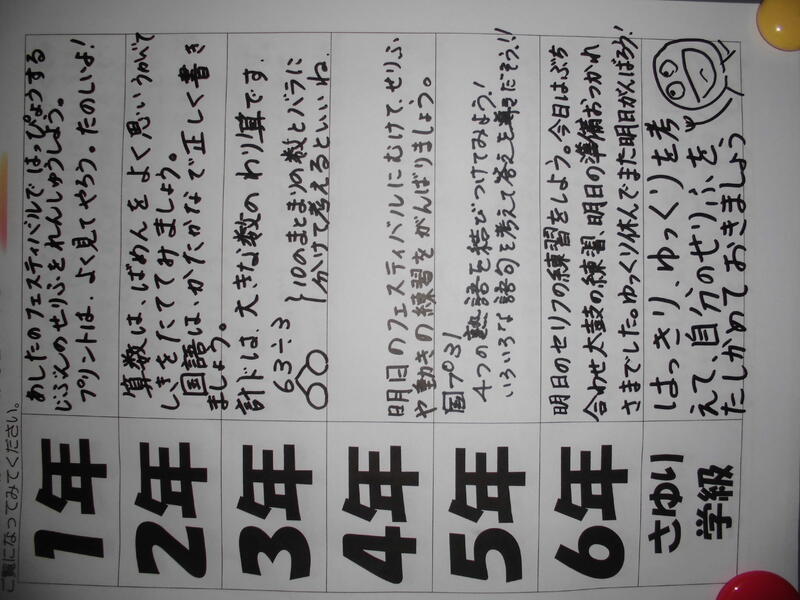 ご覧になってみてください。
1年
あしたのフェスティバルではっぴょうする
じぶんのせりふをれんしゅうしよう。
プリントは、よく見てやろう。たのしいよ!
2年
算数は、ばめんをよく思いうかべて
しきをたててみましょう。
国語は、かたかなで正しく書き
ましょう。
3年
計ドは、大きな数のわり算です。
63÷3
10のまとまりの数とバラに
分けて考えるといいね。
4年
明日のフェスティバルにむけて、せりふ
や動きの練習をがんばりましょう。
5年
国プ31
4つの熟語を結びつけてみよう!
いろいろな語句を考えて答えを導きだそう!!
6年
明日のセリフの練習をしよう。今日はぶち
合わせ太鼓の練習、明日の準備おつかれ
さまでした。ゆっくり休んでまた明日がんばろう!
さゆり
学級
はっきり、ゆっくりを考
えて、自分のせりふを、
たしかめておきましょう